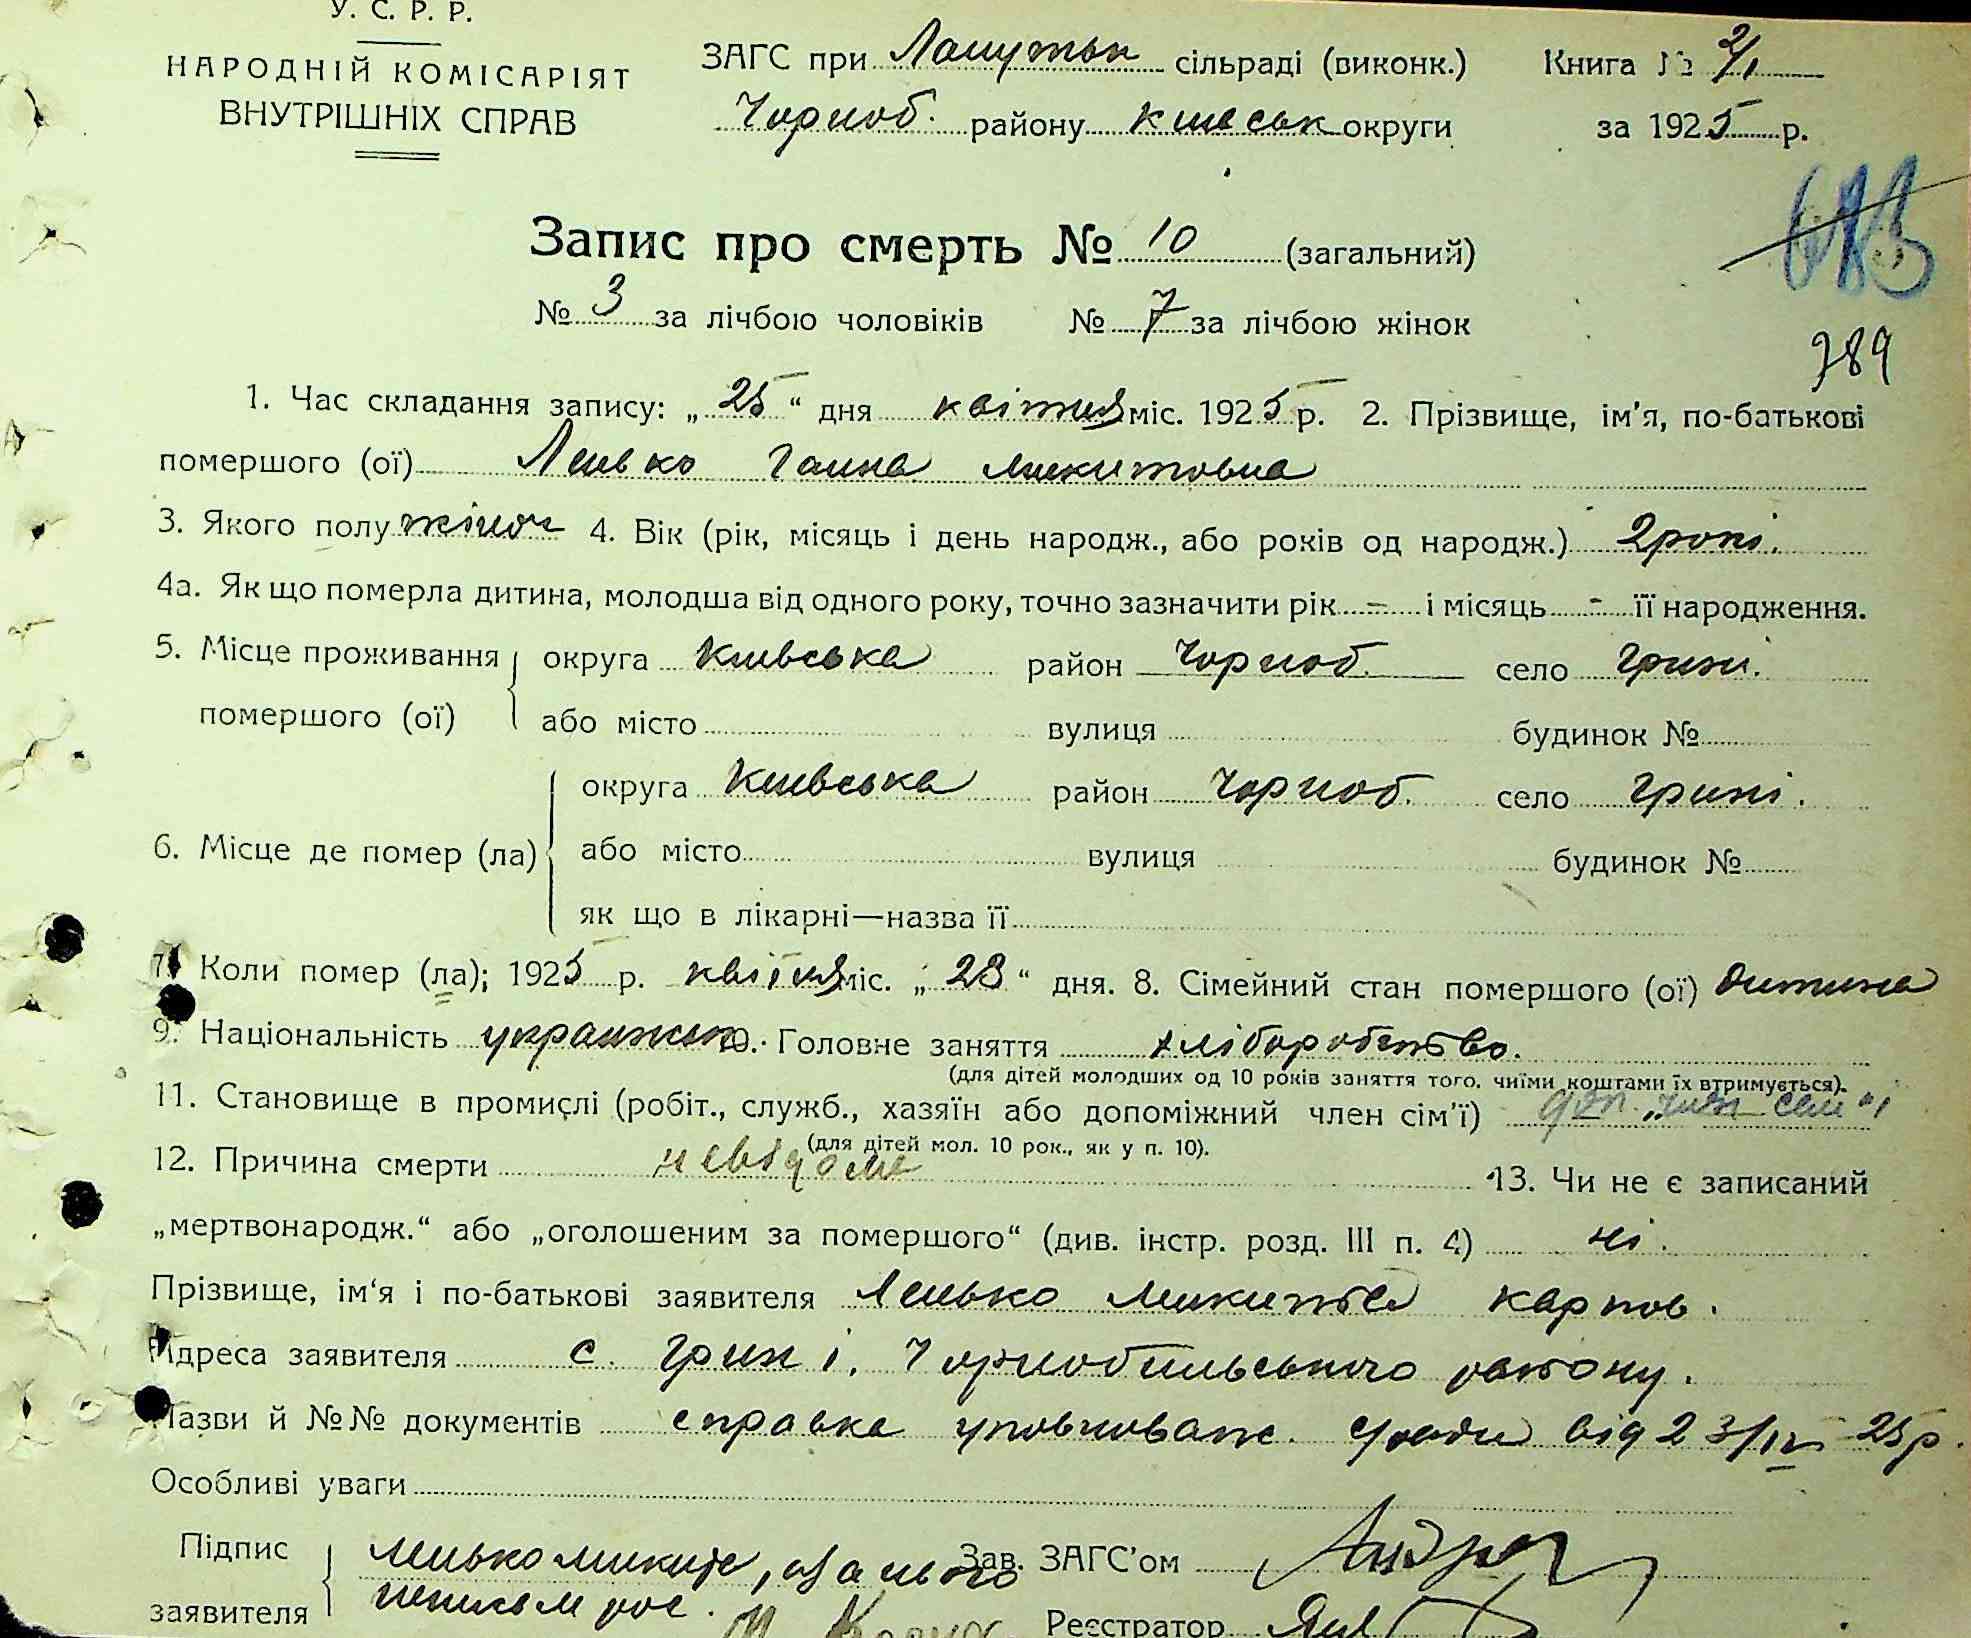 У. С. Р. Р.
НАРОДНІЙ КОМІСАРІЯТ
ВНУТРІШНІХ СПРАВ
ЗАГС при сільраді (виконк.)
Чорноб. району Київськ округи
Книга № 2/1
за 1925 р.
Запис про смерть № 10 (загальний)
№ 3 за лічбою чоловіків № 7 за лічбою жінок
789
1. Час складання запису: „25“ дня квітня міс. 1925 р. 2. Прізвище, ім'я, по-батькові
помершого (ої) Ганна Микитовна
3. Якого полу жіноч 4. Вік (рік, місяць і день народж., або років од народж.) 2 роки.
4а. Як що померла дитина, молодша від одного року, точно зазначити рік - і місяць - її народження.
5. Місце проживання помершого (ої)
округа Київська район Чорноб. село Грині.
або місто вулиця будинок №
6. Місце де помер (ла)
округа Київська район Чорноб. село Грині.
або місто вулиця будинок №
як що в лікарні—назва її
7. Коли помер (ла); 1925 р. квітня міс. „23“ дня. 8. Сімейний стан помершого (ої) дитина
9. Національність українськ 10. Головне заняття хліборобство.
(для дітей молодших од 10 років заняття того, чиїми коштами їх втримується).
11. Становище в промислі (робіт., служб., хазяїн або допоміжний член сім'ї) доп. член сем
(для дітей мол. 10 рок., як у п. 10).
12. Причина смерти невідома 13. Чи не є записаний
„мертвонародж.“ або „оголошеним за помершого“ (див. інстр. розд. III п. 4) ні.
Прізвище, ім'я і по-батькові заявителя Ленько Микита Карпов.
Адреса заявителя с. Грині, Чорнобильського району.
Назви й №№ документів справка уповноваж. від 23/IV 25 р.
Особливі уваги
Підпис заявителя
Ленько Микита, а за нього
Зав. ЗАГС'ом
Реєстратор